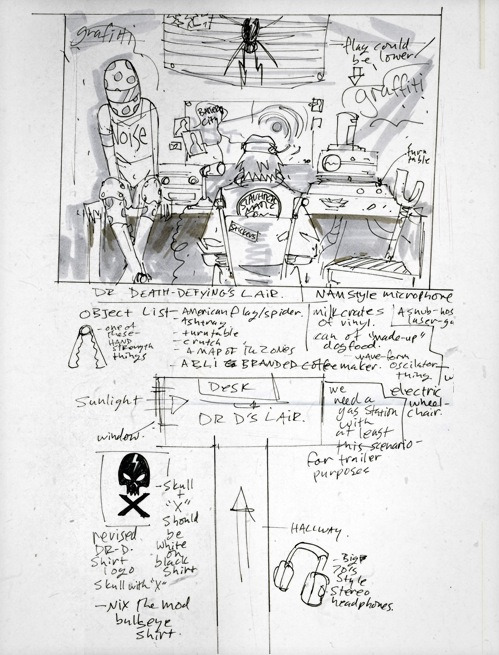 grafiti
flag could
be lower
graffiti
turn
table
NOISE
BATTERY
CITY
DR DEATH-DEFYING'S LAIR.
NAM Style microphone
OBJECT LIST - AMERICAN flag/spider.
- Ashtray
- turntable
- crutch
- A MAP OF the ZONES
- A BLI BRANDED Coffeemaker.
- one of
these
HAND
STRENGTH
things
milkcrates
of vinyl.
can of "made-up"
dogfood.
A snub-nos
laser-gu
wave-form
oscilater
thing.
electric
wheel-
chair.
Sunlight
window.
DESK
DR D'S LAIR.
we
need a
gas station
with
at least
this scenario-
for trailer
purposes
revised
DR-D.
Shirt
logo
Skull with "X"
- Skull
+
"X"
should
be
white
on
black
shirt
- Nix the mod
bullseye
shirt.
HALLWAY.
- Big
70's
style
Stereo
headphones.